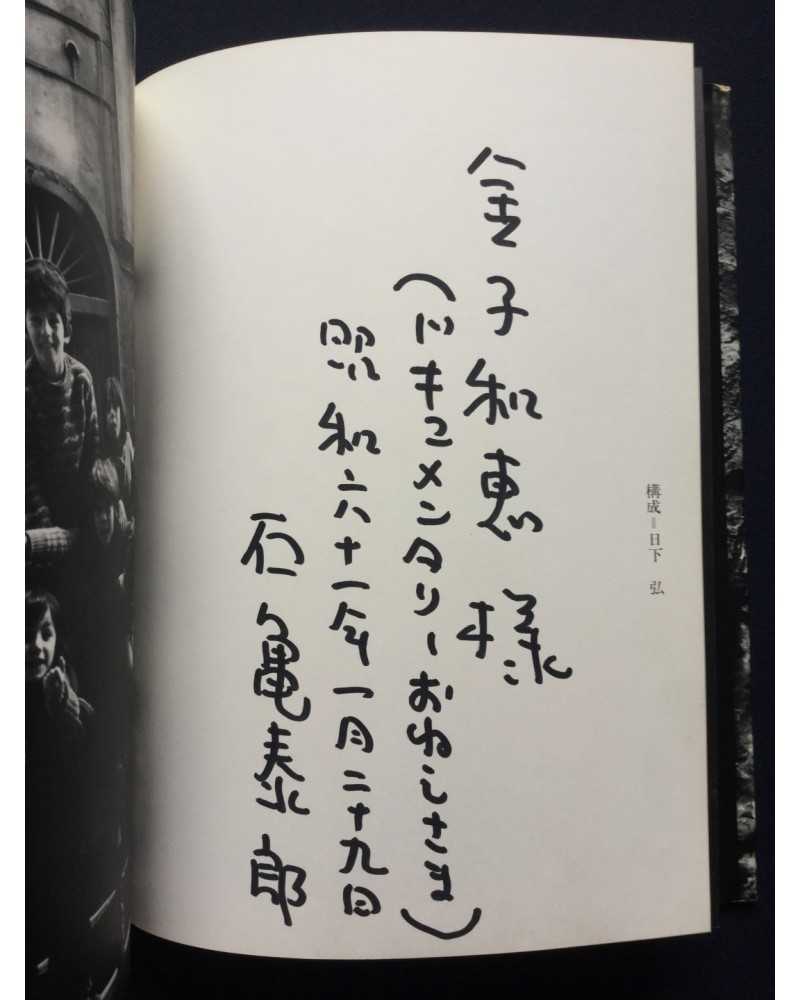 構成＝日下　弘
金子和恵様
(ドキュメンタリー
昭和六十一年一月二十九日
石亀泰郎